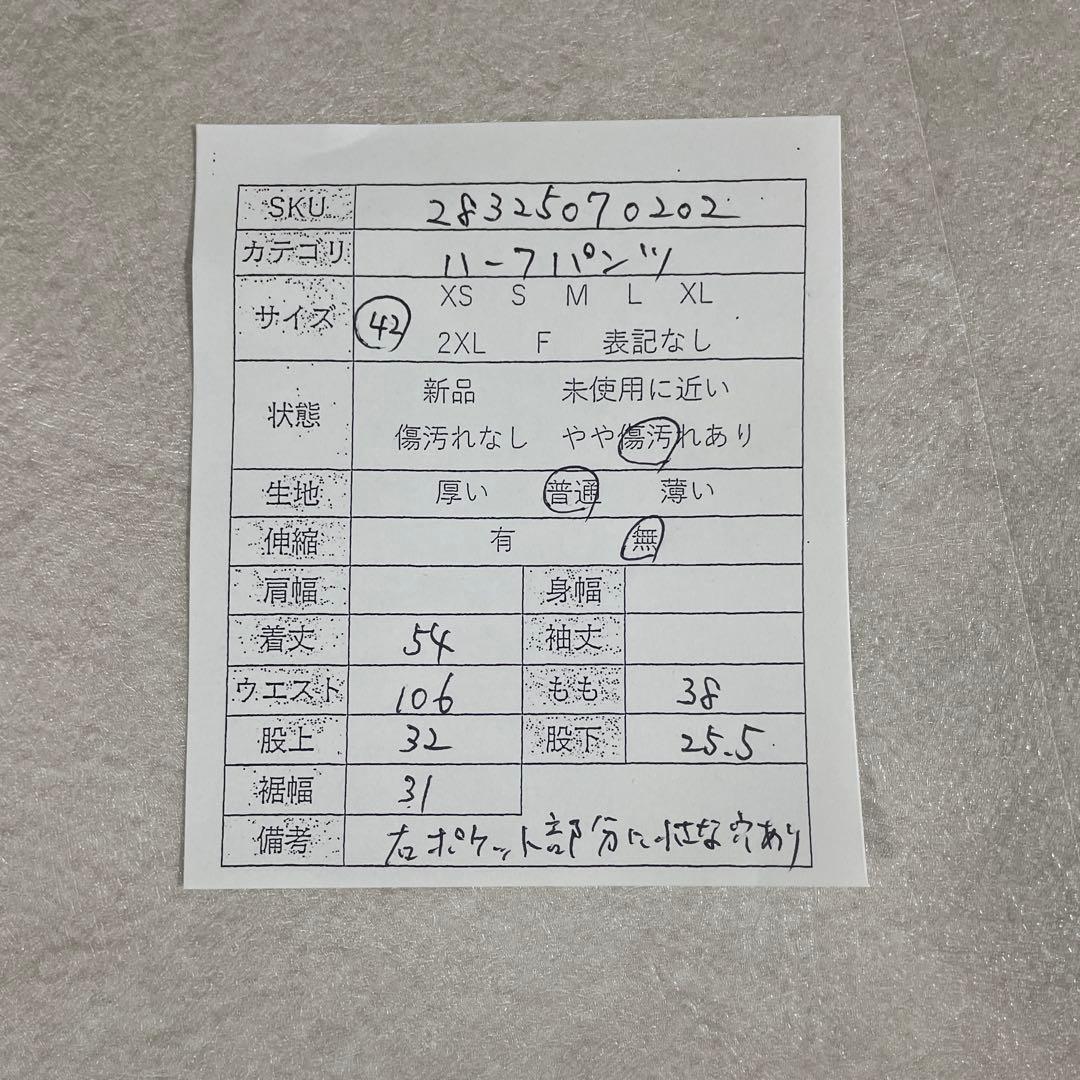 SKU 28325070202
カテゴリ ハーフパンツ
サイズ 42 XS S M L XL
2XL F 表記なし
状態 新品 未使用に近い
傷汚れなし やや傷汚れあり
生地 厚い 普通 薄い
伸縮 有 無
肩幅 身幅
着丈 54 袖丈
ウエスト 106 もも 38
股上 32 股下 25.5
裾幅 31
備考 右ポケット部分に小さな穴あり